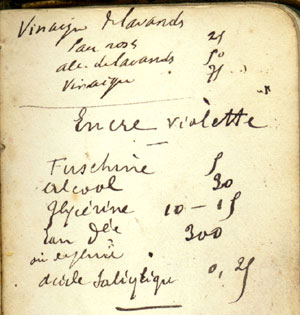 Vinaigre de lavande
Eau rose 25
alc. de lavande 50
Vinaigre 75
Encre violette
Fuschine 5
alcool 30
Glycérine 10 - 15
Eau 300
ou
acide Salicylique 0,25